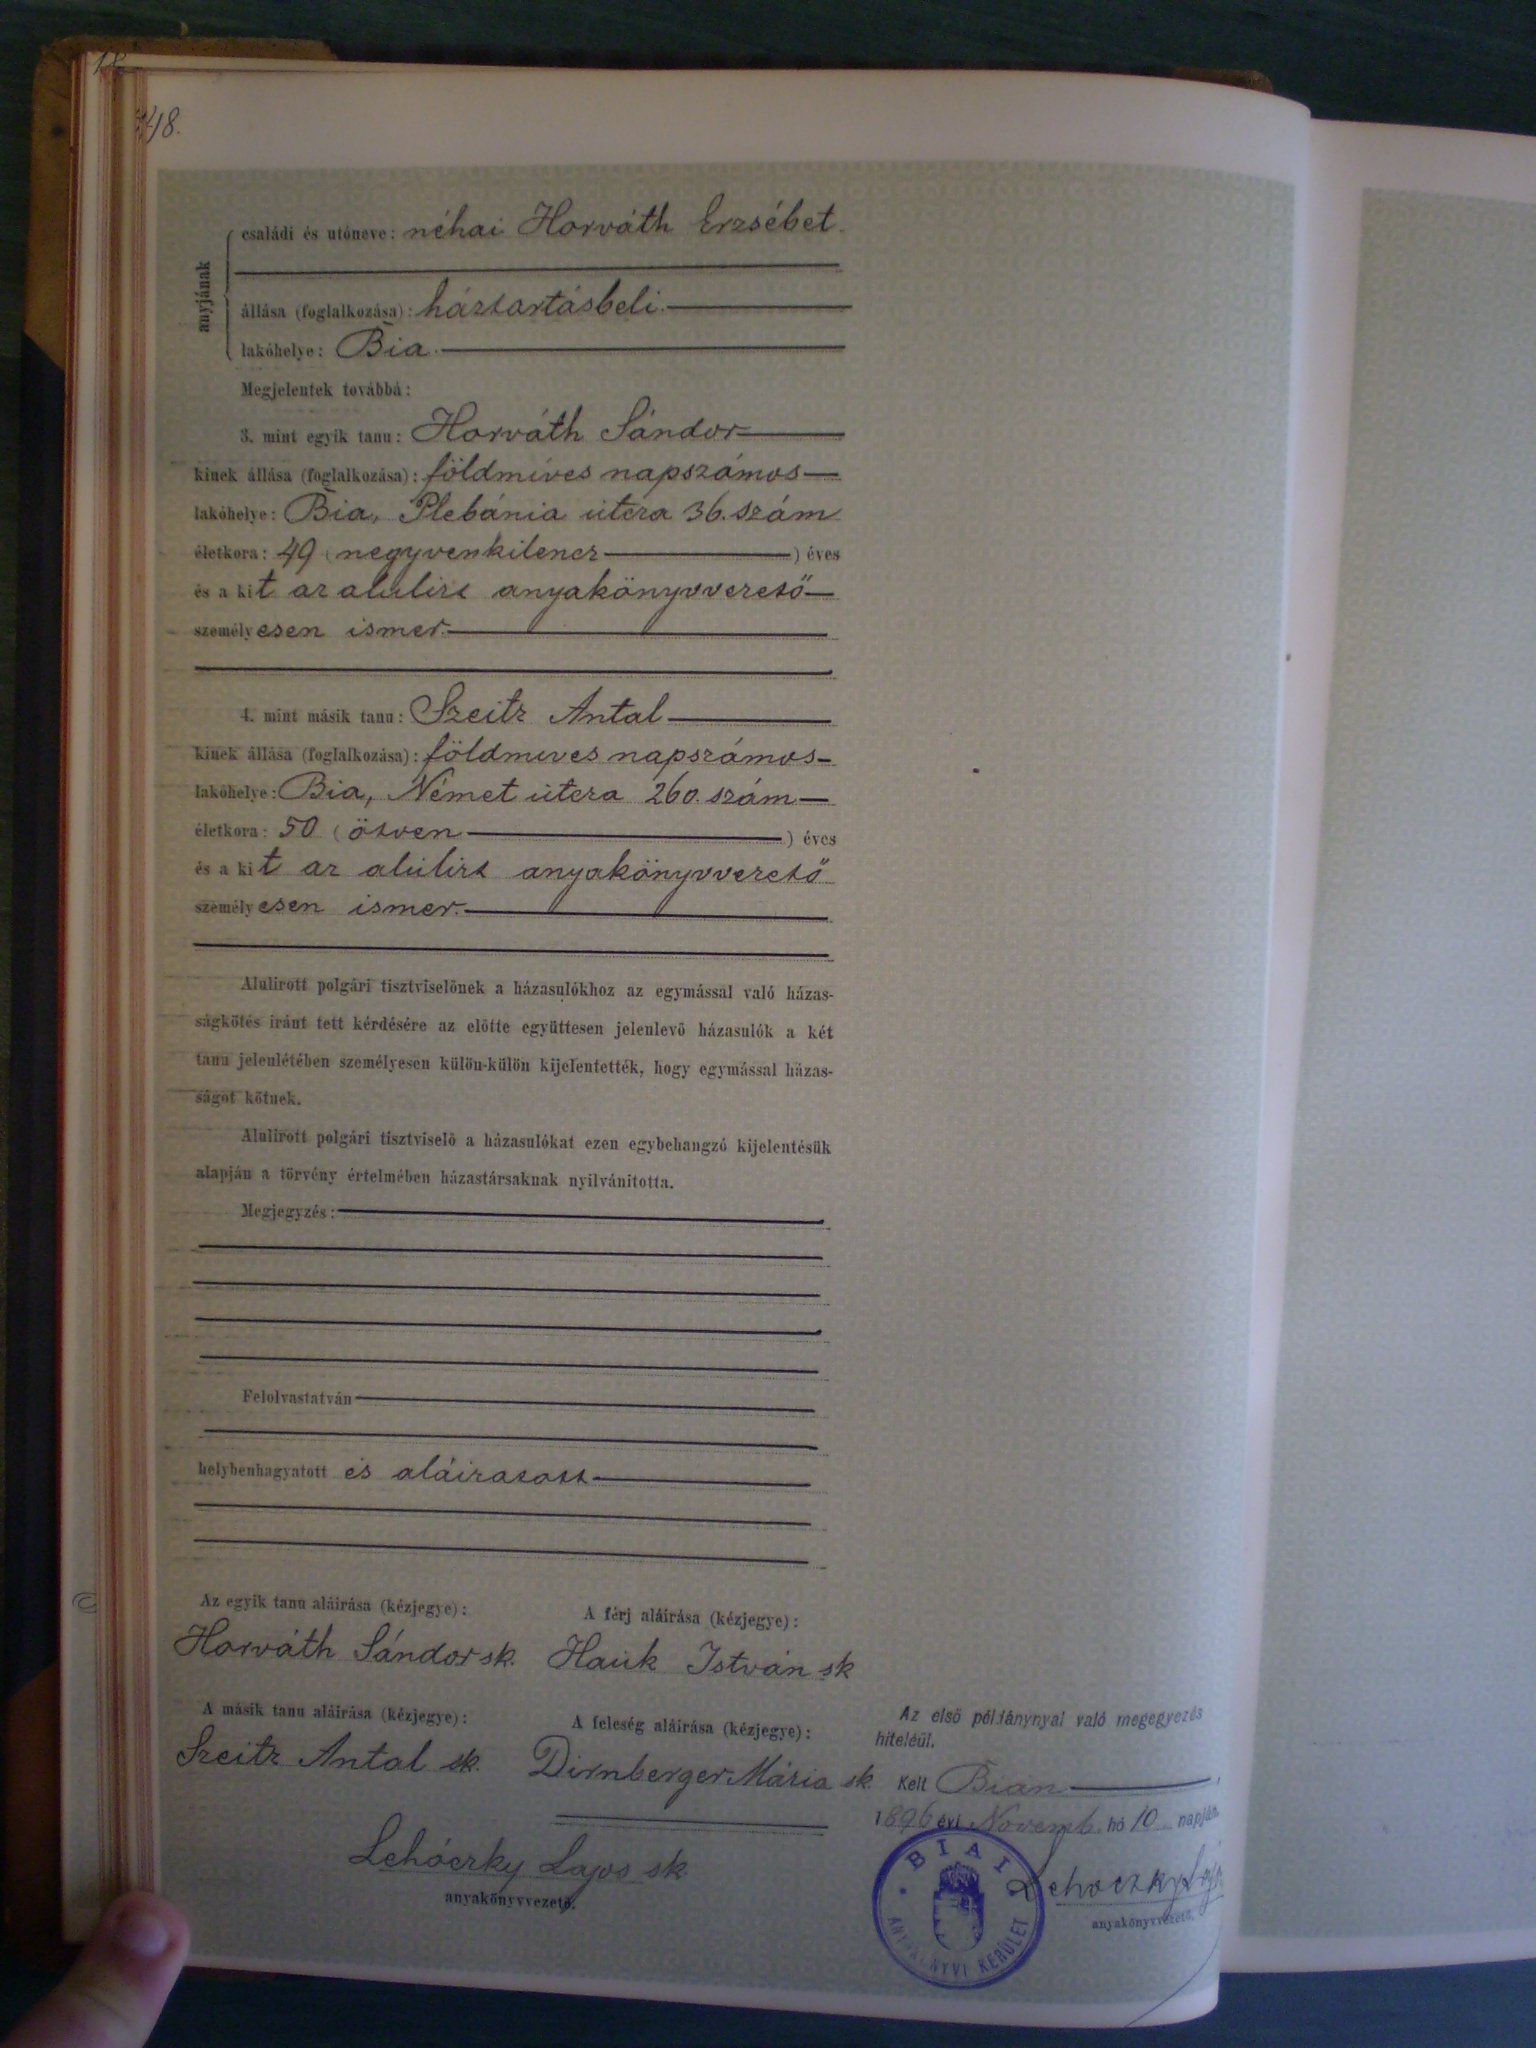 48.
anyjának
családi és utóneve: néhai Horváth Erzsébet.
állása (foglalkozása): háztartásbeli.
lakóhelye: Bia.
Megjelentek továbbá:
3. mint egyik tanu: Horváth Sándor
kinek állása (foglalkozása): földmíves napszámos
lakóhelye: Bia, Plebánia utcza 36. szám
életkora: 49 (negyvenkilencz) éves
és a kit az alulirt anyakönyvvezető
személyesen ismer.
4. mint másik tanu: Szeitz Antal
kinek állása (foglalkozása): földmives napszámos
lakóhelye: Bia, Német utcza 260. szám
életkora: 50 (ötven) éves
és a kit az alulirt anyakönyvvezető
személyesen ismer.
Alulirott polgári tisztviselőnek a házasulókhoz az egymással való házas-
ságkötés iránt tett kérdésére az előtte együttesen jelenlevő házasulók a két
tanu jelenlétében személyesen külön-külön kijelentették, hogy egymással házas-
ságot kötnek.
Alulirott polgári tisztviselő a házasulókat ezen egybehangzó kijelentésük
alapján a törvény értelmében házastársaknak nyilvánitotta.
Megjegyzés:
Felolvastatván
helybenhagyatott és aláiratott
Az egyik tanu aláirása (kézjegye): A férj aláirása (kézjegye):
Horváth Sándor sk. Hauk István sk
A másik tanu aláirása (kézjegye): A feleség aláirása (kézjegye):
Szeitz Antal sk. Dirnberger Mária sk.
Lehóczky Lajos sk
anyakönyvvezető.
Az első példánynyal való megegyezés
hiteléül.
Kelt Bián,
1896 évi Novemb. hó 10 napján.
Lehoczky Lajos
anyakönyvvezető.
BIAI
ANYAKÖNYVI KERÜLET